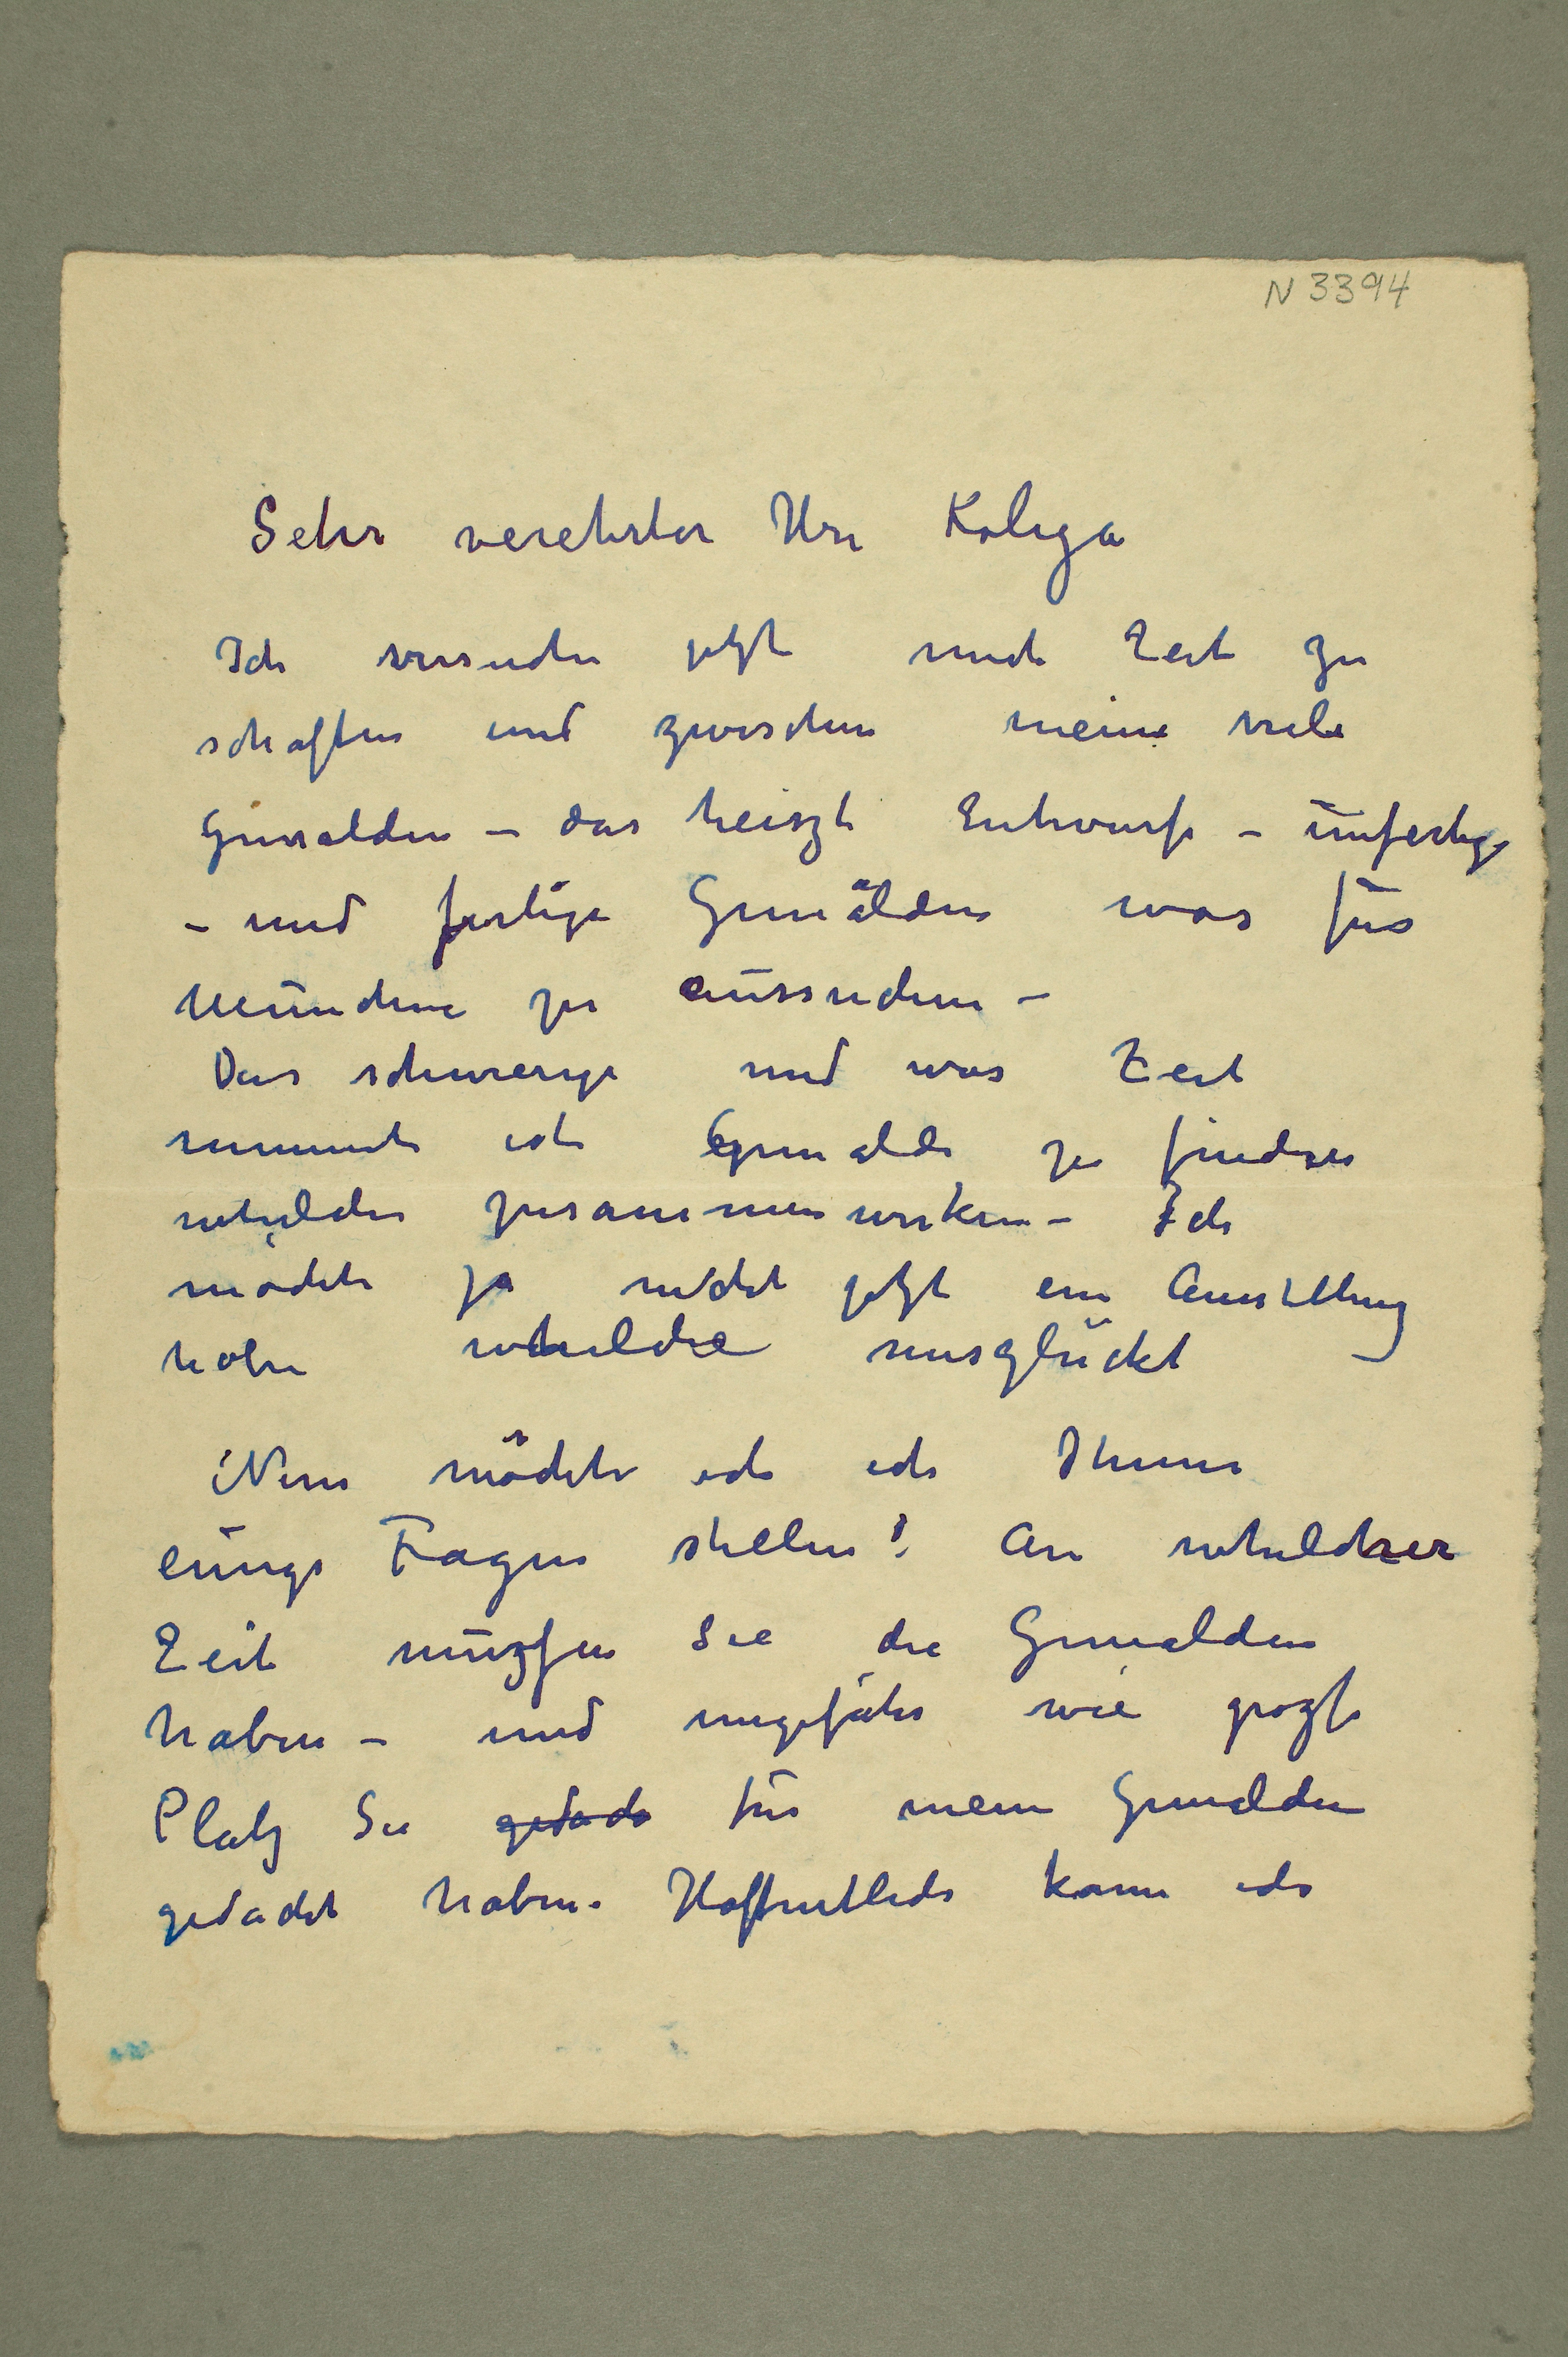 N 3394
Sehr verehrter Herr Kolega
Ich versuche jetzt mich Zeit zu
schaffen und zwischen meine viele
Gemalden – das heiszt Entwurfe – unfertige
– und fertige Gemälden was für
München zu aussuchen –
Das schwierige und was Zeit
nimmt ist Gemalde zu finden
welche zusammenwirken – Ich
möchte ja nicht jetzt ein Ausstellung
haben welche misglückt
Nun möchte ich ich Ihnen
einige Fragen stellen: An welcher
Zeit müszen Sie die Gemalden
haben – und ungefähr wie grosze
Platz Sie gedach für meine Gemalden
gedacht haben. Hoffentlich kann ich